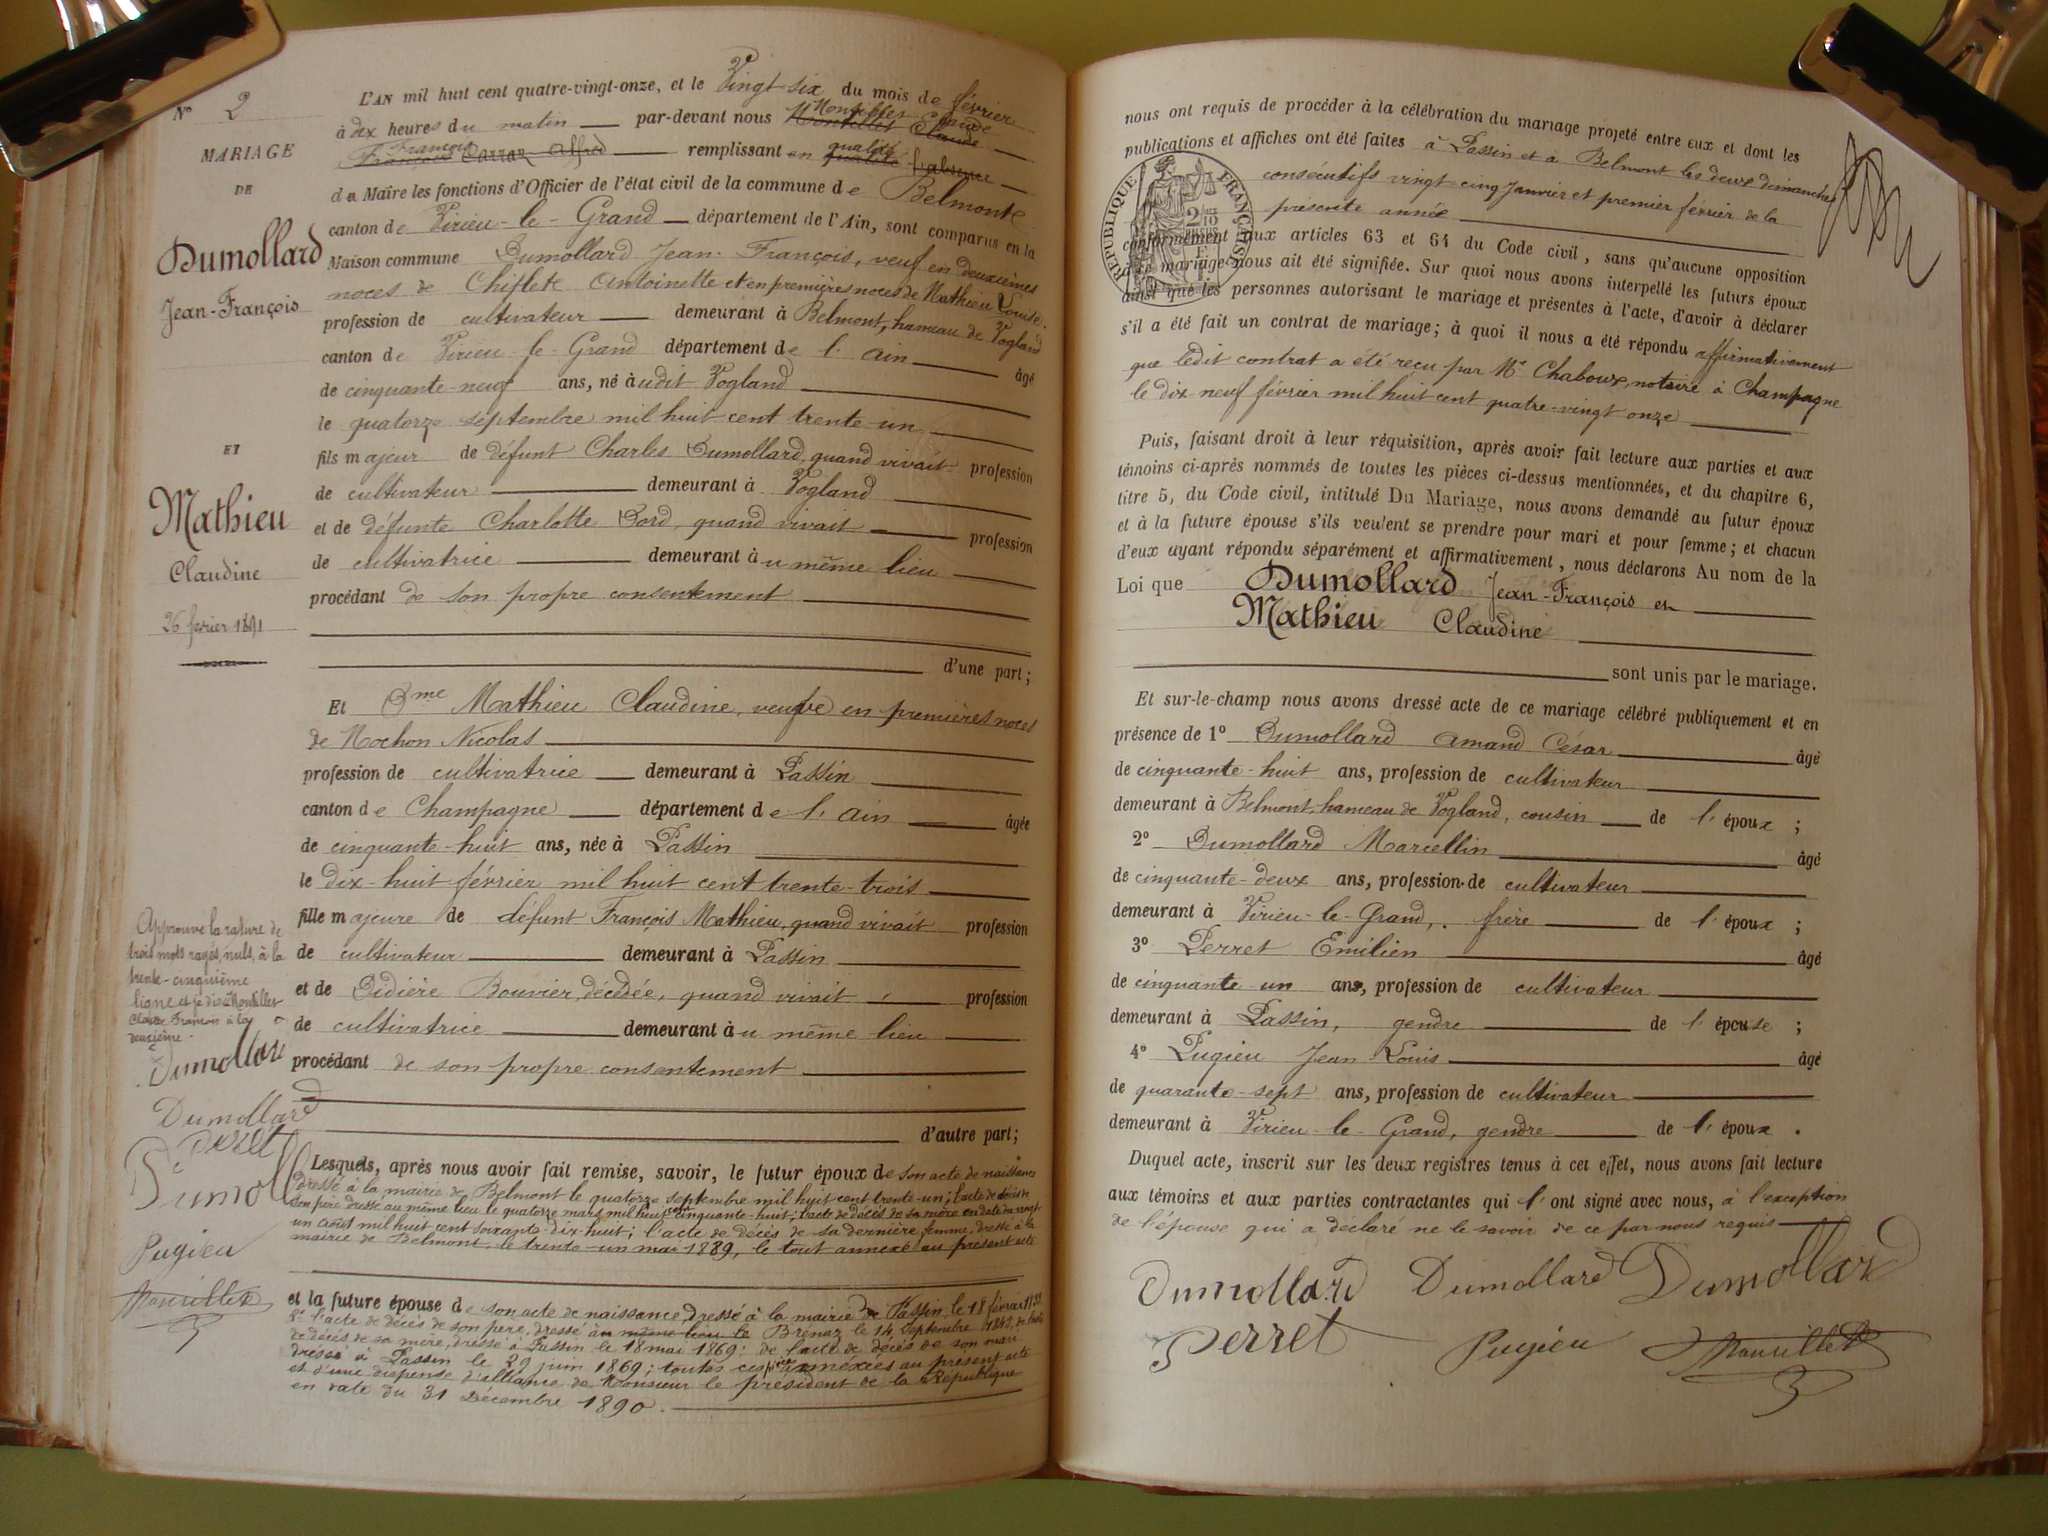 N° 2
MARIAGE
DE
Dumollard
Jean-François
ET
Mathieu
Claudine
26 fevrier 1891
L'AN mil huit cent quatre-vingt-onze, et le Vingt six du mois de février
à dix heures du matin par-devant nous Montillet Claude
François remplissant en qualité
de Maire les fonctions d'Officier de l'état civil de la commune de Belmont
canton de Virieu-le-Grand département de l'Ain, sont comparus en la
Maison commune Dumollard Jean-François, veuf en deuxièmes
noces de Chiflet Antoinette et en premières noces de Mathieu Louise
profession de cultivateur demeurant à Belmont, hameau de Vogland
canton de Virieu-le-Grand département de l'Ain âgé
de cinquante-neuf ans, né audit Vogland
le quatorze septembre mil huit cent trente-un
fils majeur de défunt Charles Dumollard, quand vivait profession
de cultivateur demeurant à Vogland
et de défunte Charlotte Bord, quand vivait profession
de cultivatrice demeurant au même lieu
procédant de son propre consentement
d'une part;
Et Dme Mathieu Claudine, veuve en premières noces
de Hochon Nicolas
profession de cultivatrice demeurant à Passin
canton de Champagne département de l'Ain âgée
de cinquante-huit ans, née à Passin
le dix-huit février mil huit cent trente-trois
fille majeure de défunt François Mathieu, quand vivait profession
de cultivateur demeurant à Passin
et de Didière Bouvier, décédée, quand vivait profession
de cultivatrice demeurant au même lieu
procédant de son propre consentement
d'autre part;
Lesquels, après nous avoir fait remise, savoir, le futur époux de son acte de naissance
dressé à la mairie de Belmont le quatorze septembre mil huit cent trente-un; l'acte de décès de
son père dressé au même lieu le quatorze mars mil huit cent cinquante-huit; l'acte de décès de sa mère en date du vingt
un août mil huit cent soixante-dix-huit; l'acte de décès de sa dernière femme, dressé à la
mairie de Belmont, le trente-un mai 1889, le tout annexé au présent acte
et la future épouse de son acte de naissance dressé à la mairie de Passin le 18 février 1833
l'acte de décès de son père, dressé au même lieu le Brénaz le 14 septembre de l'acte
de décès de sa mère, dressé à Passin le 18 mai 1869; de l'acte de décès de son mari
dressé à Passin le 29 juin 1869; toutes ces pièces annexées au présent acte
et d'une dispense d'alliance de Monsieur le président de la République
en date du 31 Décembre 1890.
Approuvé la rature de
trois mots rayés, nuls, à la
trente-cinquième
ligne et je dis Montillet
Claude François à la
deuxième.
Dumollard
Dumollard
Perret
Dumollard
Pugieu
Montillet
nous ont requis de procéder à la célébration du mariage projeté entre eux et dont les
publications et affiches ont été faites à Passin et à Belmont les deux dimanches
consécutifs vingt cinq Janvier et premier février de la
présente année
RÉPUBLIQUE FRANÇAISE
conformément aux articles 63 et 64 du Code civil, sans qu'aucune opposition
à ce mariage nous ait été signifiée. Sur quoi nous avons interpellé les futurs époux
ainsi que les personnes autorisant le mariage et présentes à l'acte, d'avoir à déclarer
s'il a été fait un contrat de mariage; à quoi il nous a été répondu affirmativement
que ledit contrat a été reçu par Me Chaboux, notaire à Champagne
le dix-neuf février mil huit cent quatre-vingt onze
Puis, faisant droit à leur réquisition, après avoir fait lecture aux parties et aux
témoins ci-après nommés de toutes les pièces ci-dessus mentionnées, et du chapitre 6,
titre 5, du Code civil, intitulé Du Mariage, nous avons demandé au futur époux
et à la future épouse s'ils veulent se prendre pour mari et pour femme; et chacun
d'eux ayant répondu séparément et affirmativement, nous déclarons Au nom de la
Loi que Dumollard Jean-François et
Mathieu Claudine
sont unis par le mariage.
Et sur-le-champ nous avons dressé acte de ce mariage célébré publiquement et en
présence de 1° Dumollard Amand César âgé
de cinquante-huit ans, profession de cultivateur
demeurant à Belmont, hameau de Vogland, cousin de l'époux;
2° Dumollard Marcellin âgé
de cinquante-deux ans, profession de cultivateur
demeurant à Virieu-le-Grand, frère de l'époux;
3° Perret Emilien âgé
de cinquante un ans, profession de cultivateur
demeurant à Passin, gendre de l'épouse;
4° Pugieu Jean Louis âgé
de quarante-sept ans, profession de cultivateur
demeurant à Virieu-le-Grand, gendre de l'époux.
Duquel acte, inscrit sur les deux registres tenus à cet effet, nous avons fait lecture
aux témoins et aux parties contractantes qui l'ont signé avec nous, à l'exception
de l'épouse qui a déclaré ne le savoir de ce par nous requis
Dumollard Dumollard Dumollard
Perret Pugieu Montillet